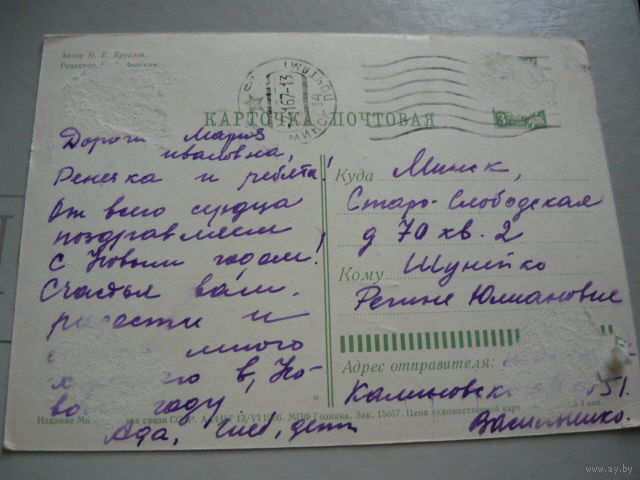 Автор Н. Е. Круглов.
Редактор
МИНСК
КАРТОЧКА ПОЧТОВАЯ
Дороги Мария
ивановна,
Ренечка и ребята!
От всего сердца
поздравляем
с Новым годом!
Счастья вам,
радости и
много
в, Но-
году!
Ада, дети
Куда Минск,
Старо-Слободская
д 70 кв. 2
Кому Шунейко
Регине Юлиановне
Адрес отправителя:
151.
Василенко.
Издание связи СССР. 13/VI 1966. МПФ Гознака. Зак. 15057. Цена художественной 4 коп.
www.ay.by